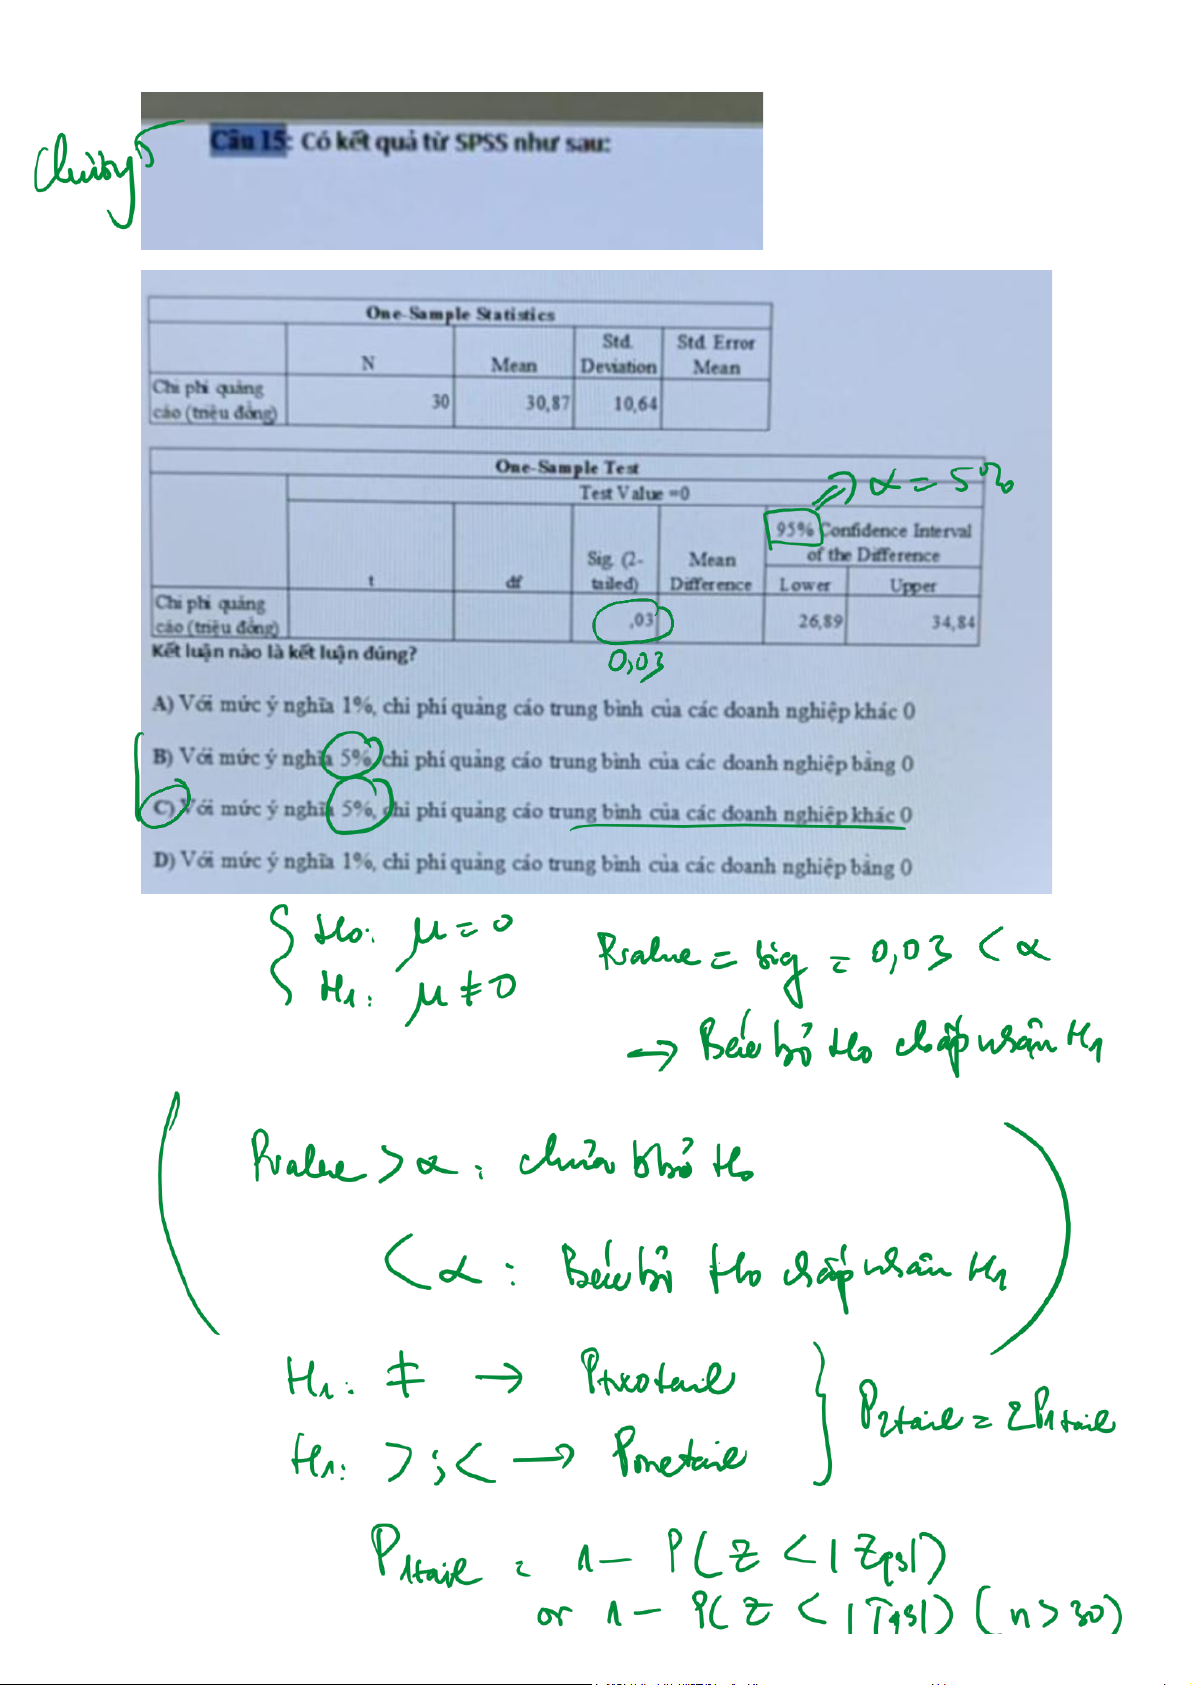 Chương 5
Câu 15: Có kết quả từ SPSS như sau:
One-Sample Statistics
N Mean Std. Deviation Std. Error Mean
Chi phí quảng cáo (triệu đồng) 30 30,87 10,64
One-Sample Test
Test Value =0
=> α = 5%
t df Sig. (2-tailed) Mean Difference 95% Confidence Interval of the Difference
Lower Upper
Chi phí quảng cáo (triệu đồng) ,03 26,89 34,84
0,03
Kết luận nào là kết luận đúng?
A) Với mức ý nghĩa 1%, chi phí quảng cáo trung bình của các doanh nghiệp khác 0
B) Với mức ý nghĩa 5%, chi phí quảng cáo trung bình của các doanh nghiệp bằng 0
C) Với mức ý nghĩa 5%, chi phí quảng cáo trung bình của các doanh nghiệp khác 0
D) Với mức ý nghĩa 1%, chi phí quảng cáo trung bình của các doanh nghiệp bằng 0
{ H0: μ = 0
H1: μ ≠ 0
Pvalue = sig = 0,03 < α
→ Bác bỏ H0 chấp nhận H1
( Pvalue > α : chưa bbỏ H0
< α : Bác bỏ H0 chấp nhận H1 )
H1: ≠ → Ptwotail
H1: > ; < → Ponetail
} P2tail = 2P1tail
P1tail = 1 - P(Z < |Zqs|)
or 1 - P(Z < |Tqs|) (n > 30)